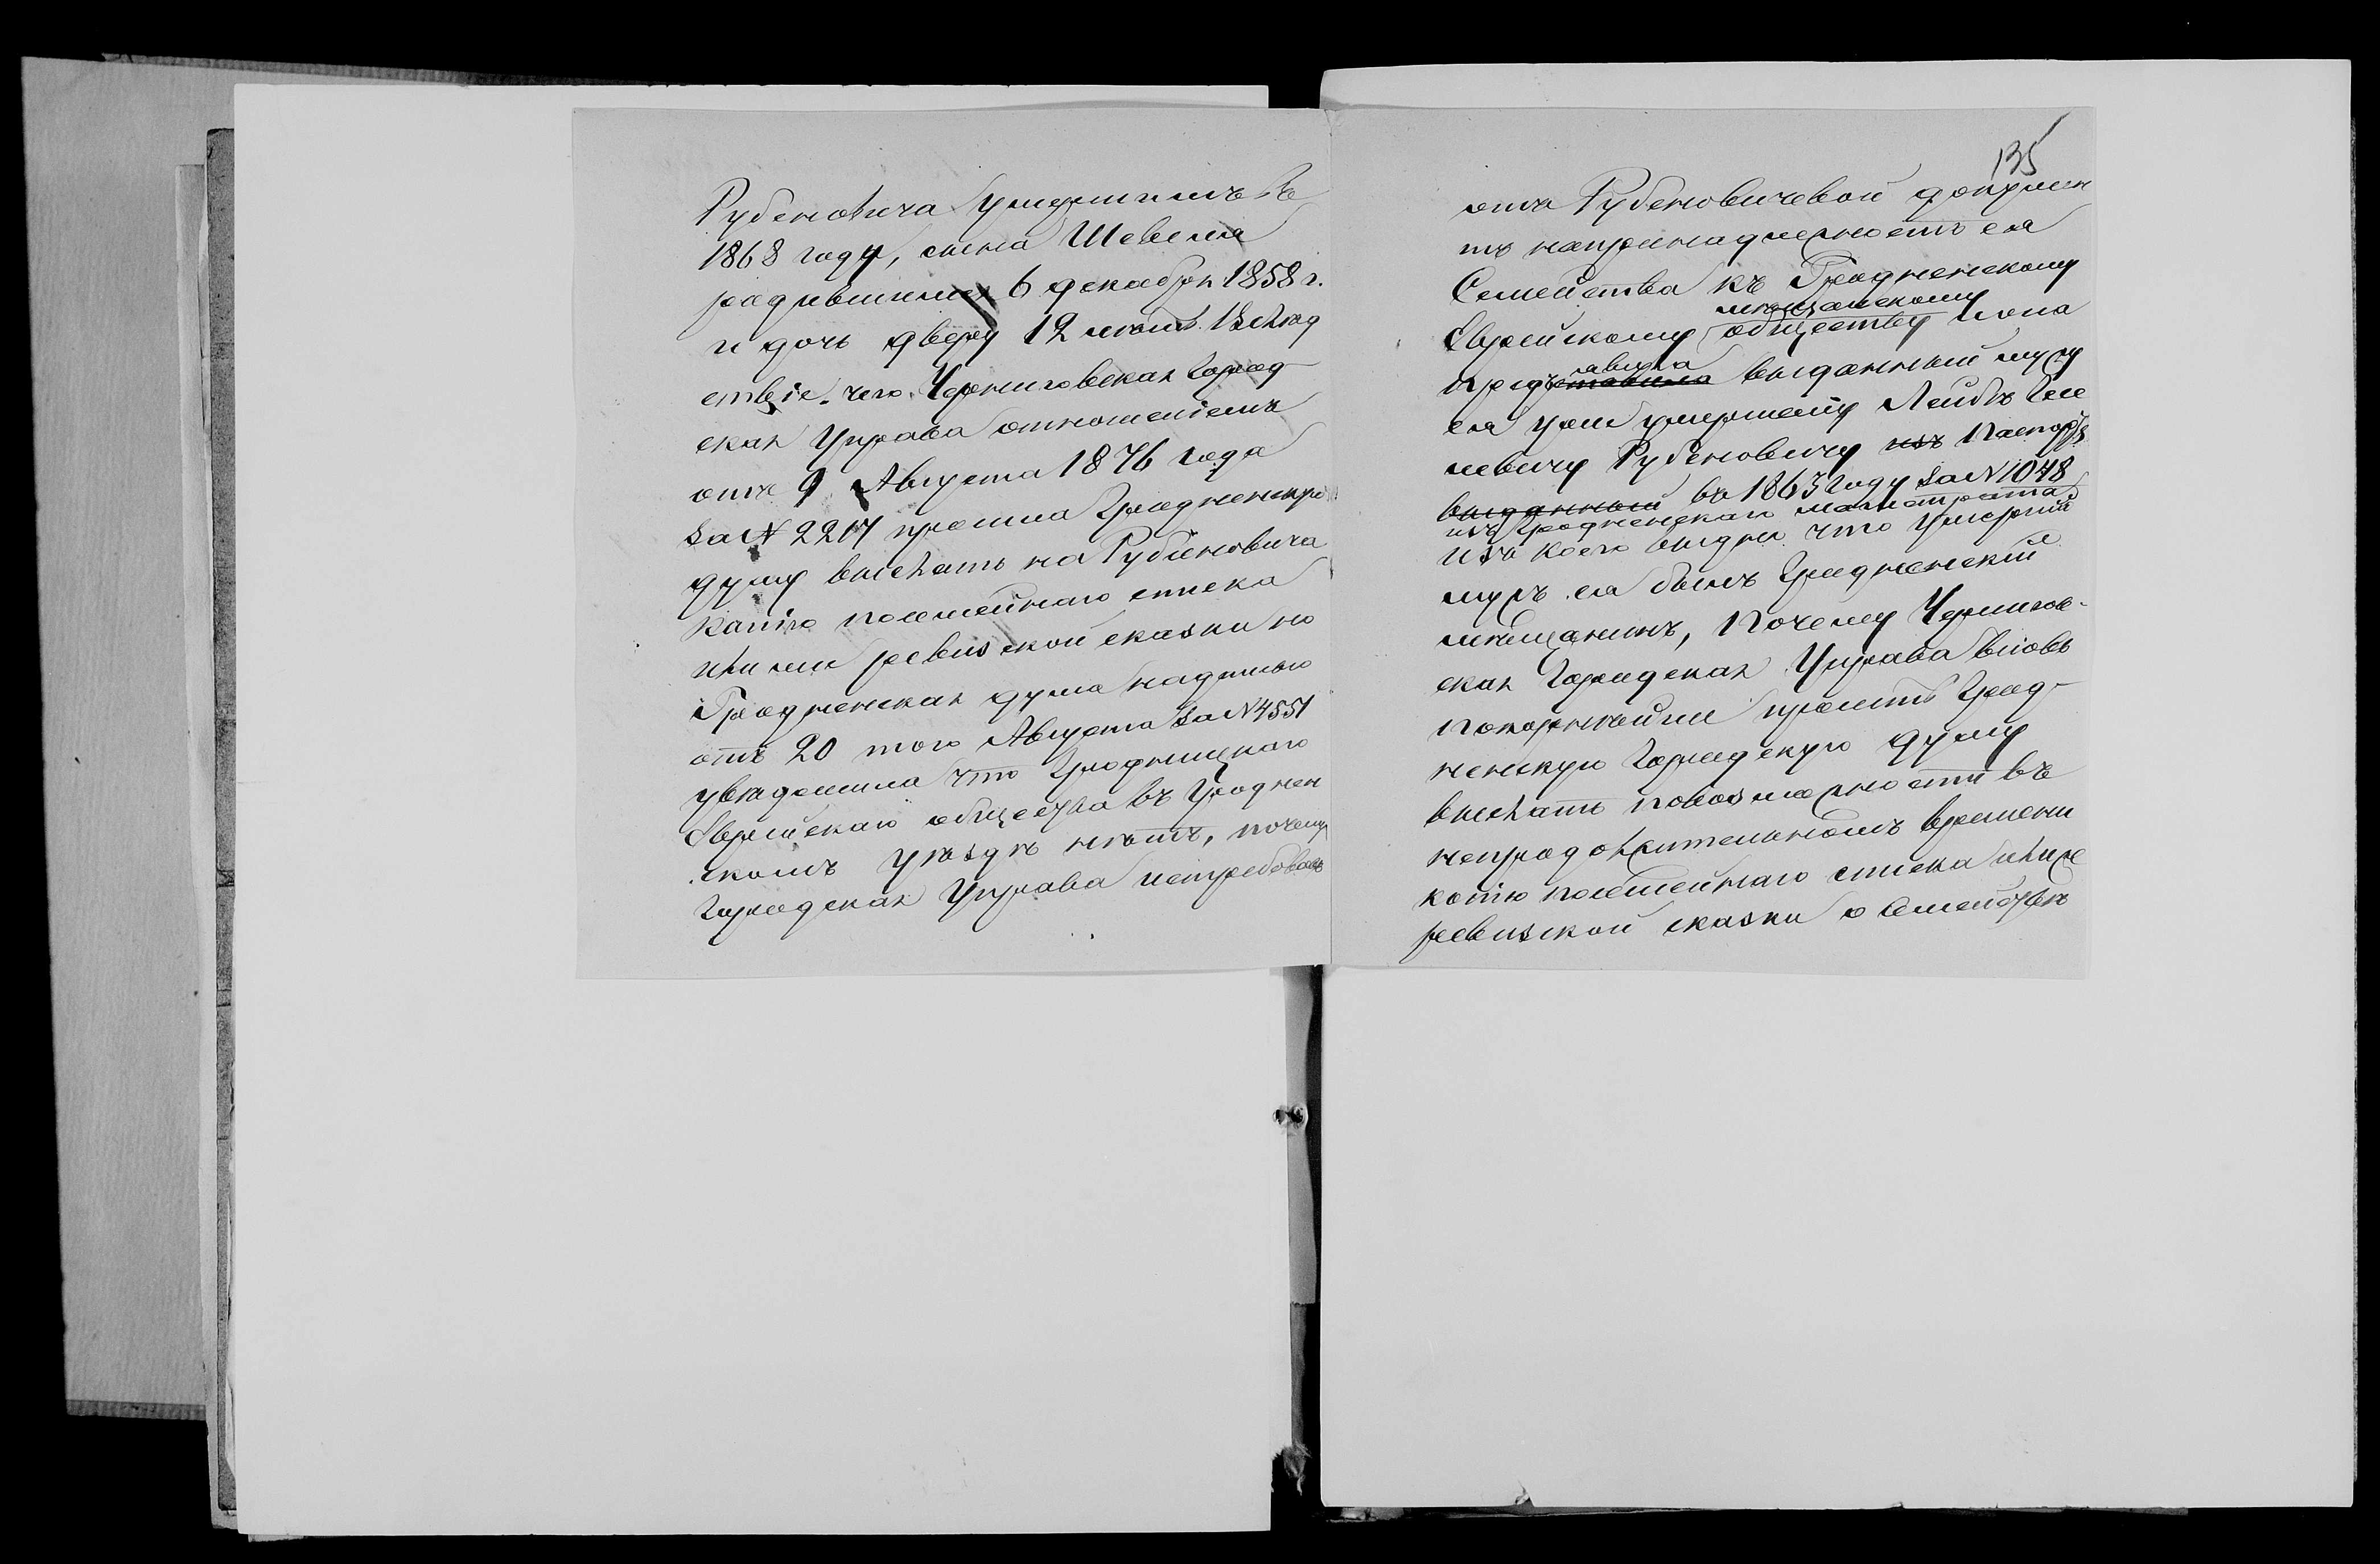 Рубеновича умершимъ въ
1868 году, сына Шевеля
родившимся 6 декабря 1858 г.
и дочь Дверу 12 лѣтъ. Вслѣд
ствіе чего Черниговская Город
ская Управа отношеніемъ
отъ 9 Августа 1876 года
за № 2217 просила Гродненскую
думу выслать на Рубеновича
копію посемейнаго списка
или ревизской сказки но
Гродненская дума надписью
отъ 20 того Августа за № 4551
увѣдомила что Гродницкаго
Еврейскаго общества въ Гроднен
скомъ уѣздѣ нѣтъ, почему
Городская Управа истребовавъ
135
отъ Рубеновичевой докумен
тъ напринадлежность ея
Семейства къ Гродненскому
мѣщанскому
Еврейскому обществу и она
явила
представила выданный мужу
ея уже умершему Лейбѣ
левичу Рубеновичу изъ Паспортъ
выданный въ 1863 году за № 1048
изъ Гродненскаго магистрата
изъ коего видно что умерший
мужъ ея былъ Гродненскій
мѣщанинъ, Почему Чернигов-
ская Городская Управа вновь
покорнѣйше проситъ Грод-
ненскую Городскую думу
выслать повозможности въ
непродолжительномъ времени
копію посемейнаго списка или
ревизской сказки о Семействѣ